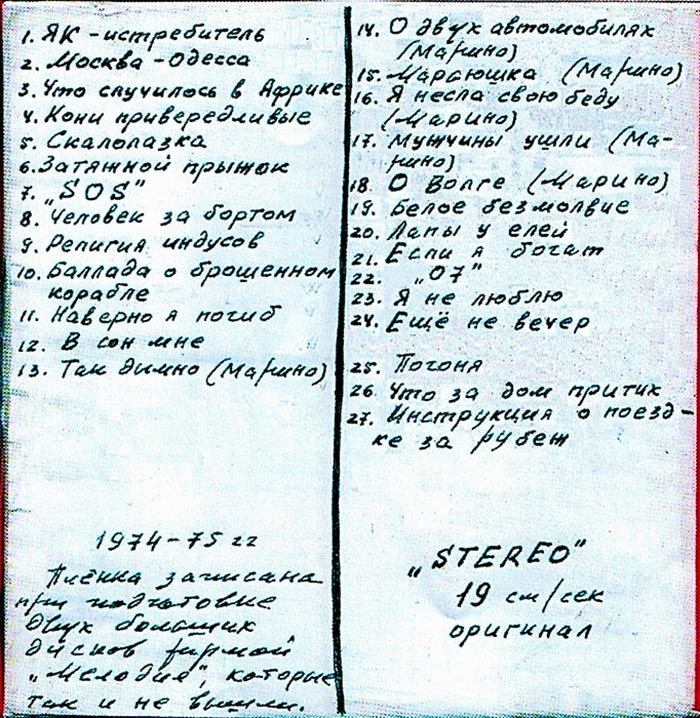 1. ЯК-истребитель
2. Москва-Одесса
3. Что случилось в Африке
4. Кони привередливые
5. Скалолазка
6. Затяжной прыжок
7. „SOS"
8. Человек за бортом
9. Религия индусов
10. Баллада о брошенном
корабле
11. Наверно я погиб
12. В сон мне
13. Так дымно (Марино)
1974-75 гг
Плёнка записана
при подготовке
двух больших
дисков фирмой
„Мелодия", которые
так и не вышли.
14. О двух автомобилях
(Марино)
15. Марьюшка (Марино)
16. Я несла свою беду
(Марино)
17. Мужчины ушли (Ма-
рино)
18. О Волге (Марино)
19. Белое безмолвие
20. Лапы у елей
21. Если я богат
22. „07"
23. Я не люблю
24. Ещё не вечер
25. Погоня
26. Что за дом притих
27. Инструкция о поезд-
ке за рубеж
„STEREO"
19 см/сек
оригинал